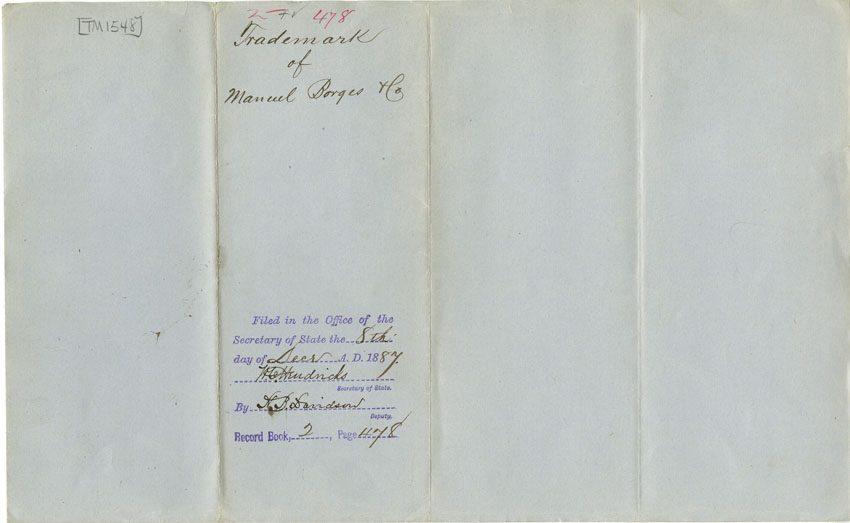 [TM1548]
2 478
Trademark
of
Manuel Borges & Co
Filed in the Office of the
Secretary of State the 8th
day of Decr A. D. 1887.
W C Hendricks
Secretary of State.
By H. B. Davidson
Deputy.
Record Book, 2, Page 478